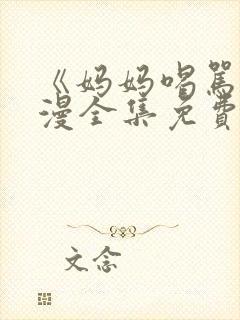 《妈妈喝骂
漫全集免費
文念